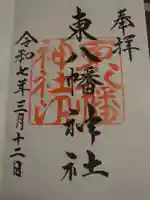 奉拝
東八幡神社
令和七年三月十二日